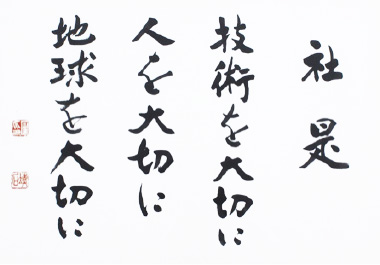 社是
技術を大切に
人を大切に
地球を大切に